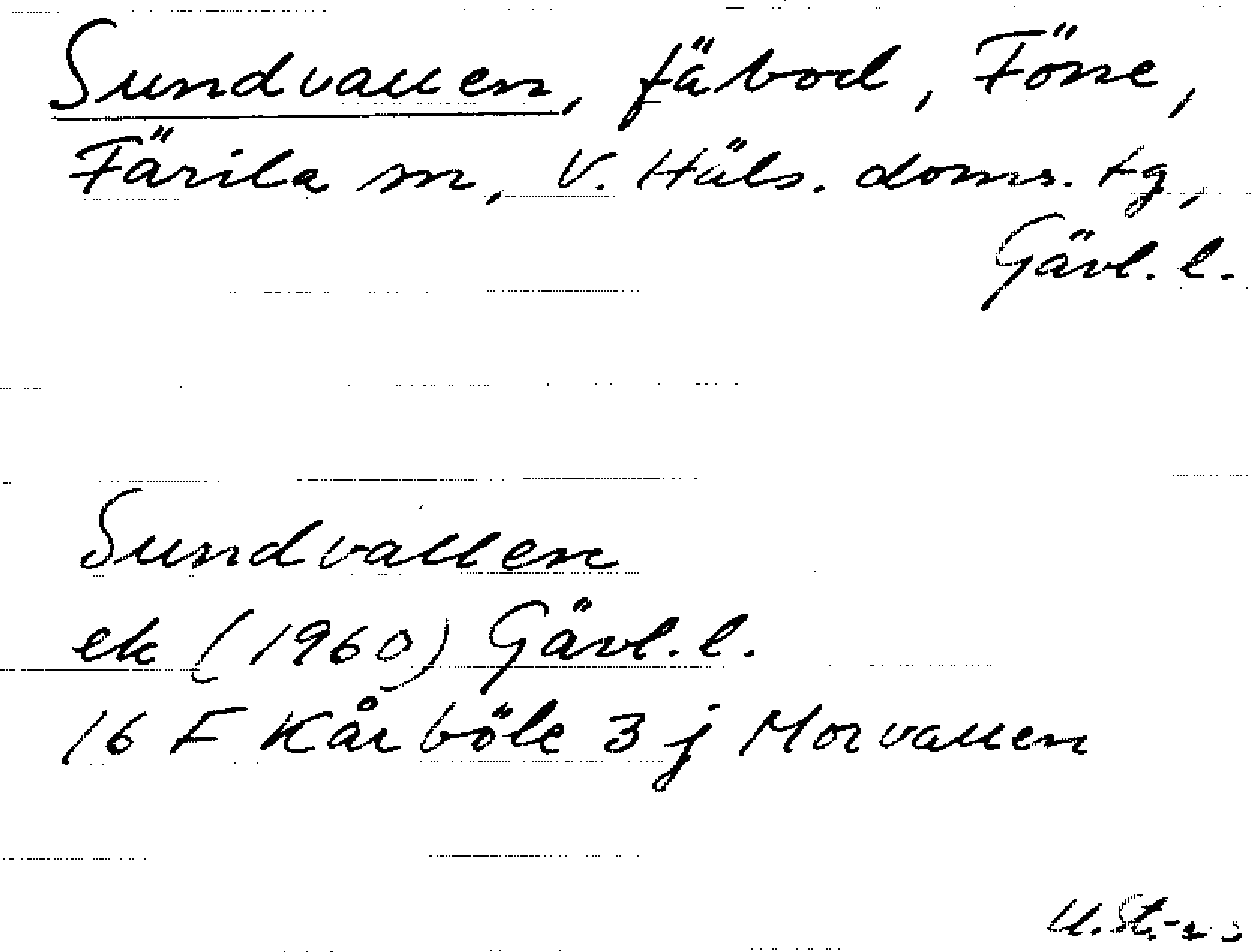 Sundvallen, fäbod, Föne,
Färila sn, V. Häls. doms. tg,
Gävl. l.
Sundvallen
ek (1960) Gävl. l.
16 F Kårböle 3 j Morvallen